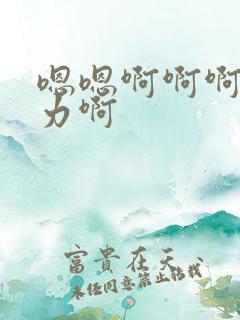 嗯嗯啊啊啊
力啊
富貴在天
未经同意禁止转载